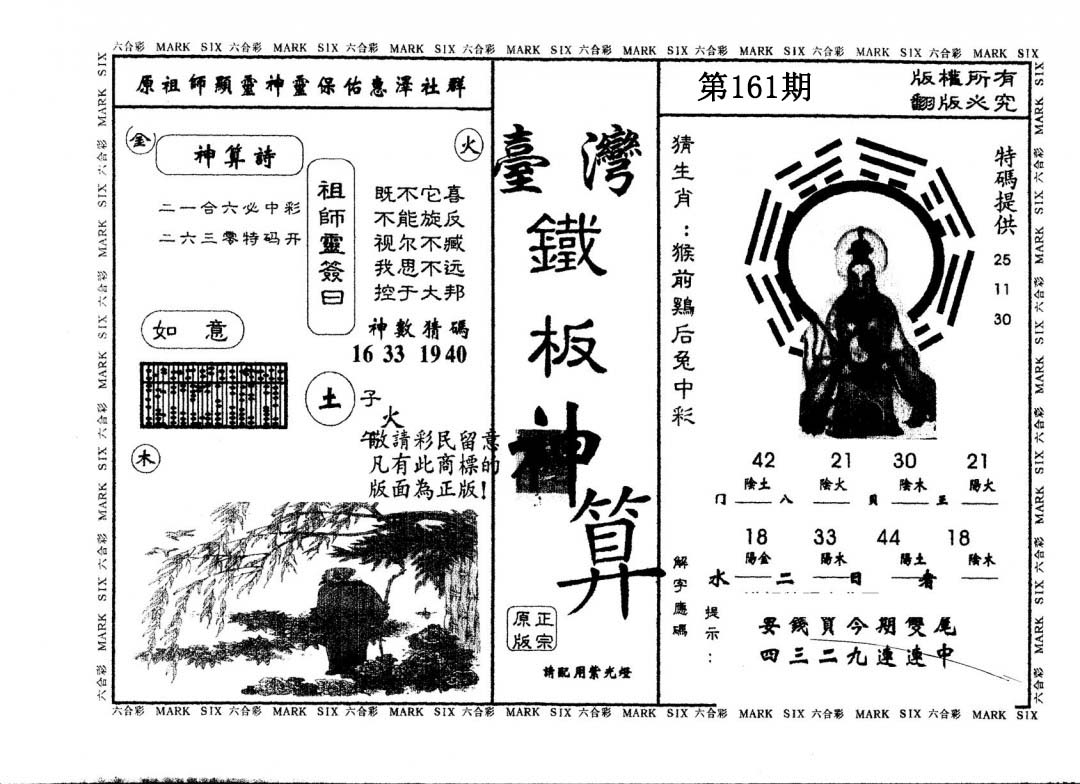 六合彩 MARK SIX 六合彩 MARK SIX 六合彩 MARK SIX 六合彩 MARK SIX 六合彩 MARK SIX 六合彩 MARK SIX 六合彩 MARK SIX 六合彩 MARK SIX
原祖師顯靈神靈保佑惠澤社群
金
火
神算詩
二一合六必中彩
二六三零特码开
祖師靈簽曰
既不它喜
不能旋反
视尔不臧
我思不远
控于大邦
神數猜碼
16 33 19 40
如意
土
子
火
午
敬請彩民留意
凡有此商標的
版面為正版!
木
臺灣
鐵
板
神
算
正宗
原版
請配用紫光燈
第161期
版權所有
翻版必究
猜生肖:猴前鷄后兔中彩
特碼提供
25
11
30
42 21 30 21
陰土 陰火 陰木 陽火
門 八 貝 五
18 33 44 18
陽金 陽木 陽土 陰木
水 二 日 者
解字應碼
提示:
要錢買今期雙尾
四三二九連連中
六合彩 MARK SIX 六合彩 MARK SIX 六合彩 MARK SIX 六合彩 MARK SIX 六合彩 MARK SIX 六合彩 MARK SIX 六合彩 MARK SIX 六合彩 MARK SIX